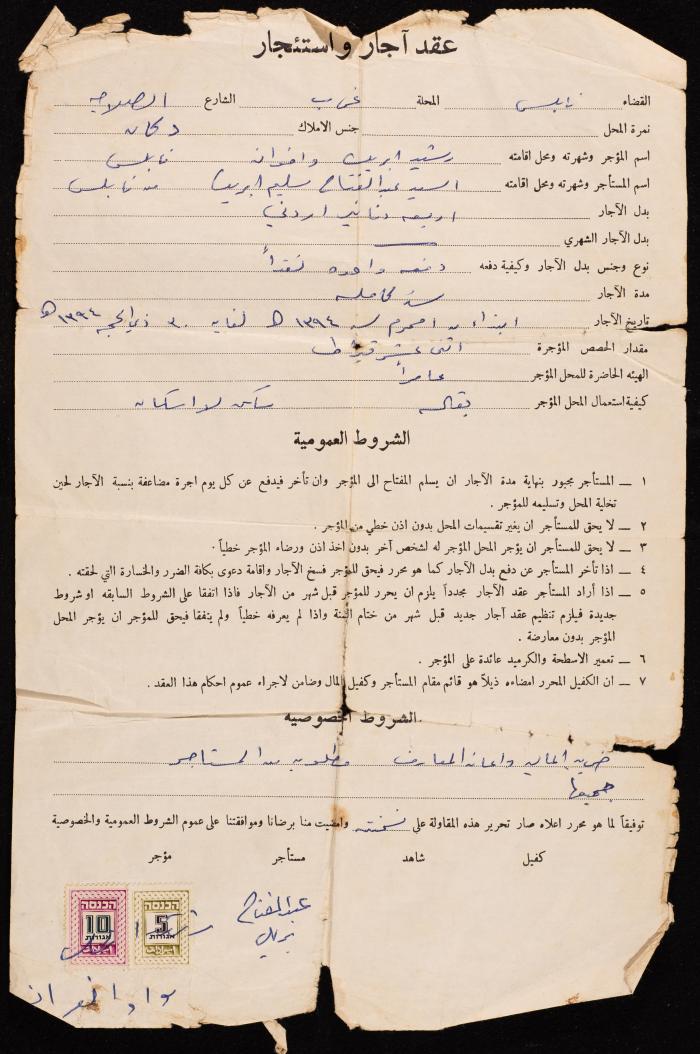 عقد آجار واستئجار
القضاء نابلس المحلة غرب الشارع الصلاحيه
نمرة المحل جنس الاملاك دكان
اسم المؤجر وشهرته ومحل اقامته رشيد ابريك واخوانه نابلس
اسم المستأجر وشهرته ومحل اقامته السيد عبد الفتاح سليم ابريك من نابلس
بدل الآجار اربعه دنانير اردني
بدل الآجار الشهري
نوع وجنس بدل الآجار وكيفية دفعه دفعه واحده نقداً
مدة الآجار سنه كامله
تاريخ الآجار ابتداء من ١ محرم سنه ١٣٩٤ هـ لغايه ٣٠ ذي الحجه ١٣٩٤ هـ
مقدار الحصص المؤجرة اثنى عشر قيراط
الهيئه الحاضرة للمحل المؤجر عامراً
كيفية استعمال المحل المؤجر بقاله سكن لا اسكان
الشروط العمومية
١ — المستأجر مجبور بنهاية مدة الآجار ان يسلم المفتاح الى المؤجر وان تأخر فيدفع عن كل يوم اجرة مضاعفة بنسبة الآجار لحين
تخلية المحل وتسليمه للمؤجر .
٢ — لا يحق للمستأجر ان يغير تقسيمات المحل بدون اذن خطي من المؤجر .
٣ — لا يحق للمستأجر ان يؤجر المحل المؤجر له لشخص آخر بدون اخذ اذن ورضاء المؤجر خطياً .
٤ — اذا تأخر المستأجر عن دفع بدل الآجار كما هو محرر فيحق للمؤجر فسخ الآجار واقامة دعوى بكافة الضرر والخسارة التي لحقته .
٥ — اذا أراد المستأجر عقد الآجار مجدداً يلزم ان يحرر للمؤجر قبل شهر من الآجار فاذا اتفقا على الشروط السابقه او شروط
جديدة فيلزم تنظيم عقد آجار جديد قبل شهر من ختام السنة واذا لم يعرفه خطياً ولم يتفقا فيحق للمؤجر ان يؤجر المحل
المؤجر بدون معارضة .
٦ — تعمير الاسطحة والكرميد عائدة على المؤجر .
٧ — ان الكفيل المحرر امضاءه ذيلاً هو قائم مقام المستأجر وكفيل المال وضامن لاجراء عموم احكام هذا العقد .
الشروط الخصوصية
ضريبه الماليه واعانه المعارف مطلوبه من المستاجر
جميعها
توفيقاً لما هو محرر اعلاه صار تحرير هذه المقاولة على نسختين وامضيت منا برضانا وموافقتنا على عموم الشروط العمومية والخصوصية
كفيل شاهد مستأجر مؤجر
عبد الفتاح
بريك
הכנסה הכנסה
10 5
אגורות אגורות